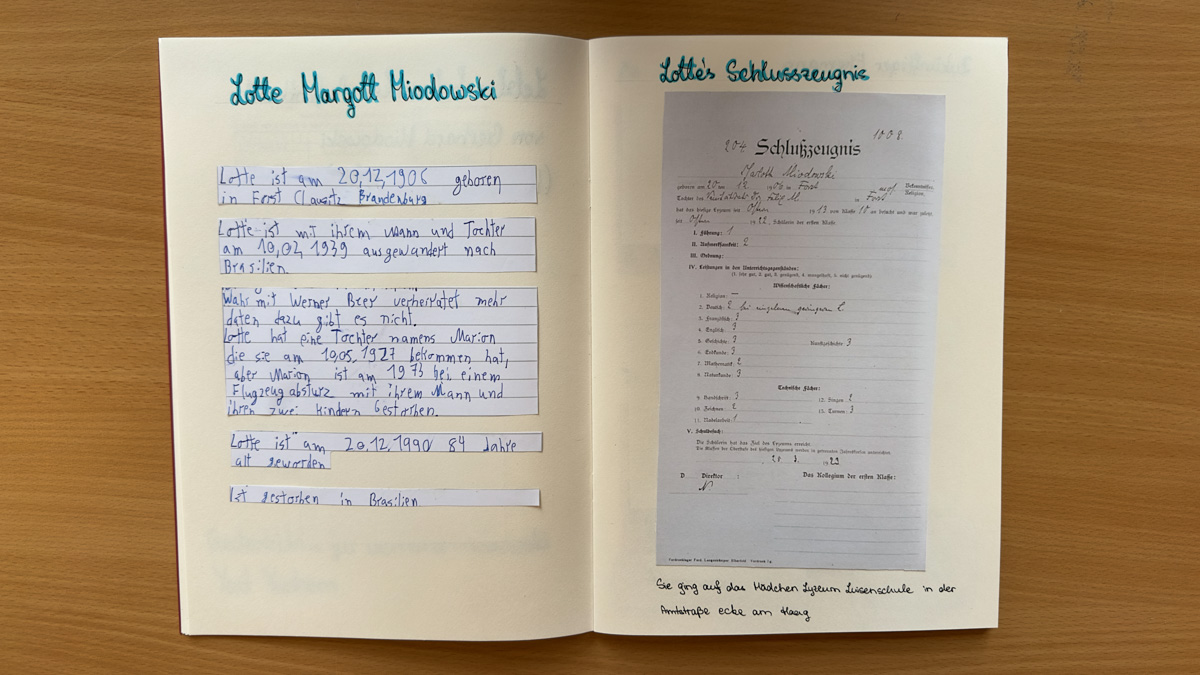 Lotte Margott Miodowski
Lotte ist am 20,12,1906 geboren
in Forst (Lausitz Brandenburg
Lotte ist mit ihrem Mann und Tochter
am 10,02,1939 ausgewandert nach
Brasilien.
Wahr mit Werner Beer verheiratet mehr
daten dazu gibt es nicht.
Lotte hat eine Tochter namens Marion
die sie am 10,05,1927 bekommen hat,
aber Marion ist am 1973 bei einem
Flugzeug absturz mit ihrem Mann und
ihren zwei kindern Gestorben.
Lotte ist am 20,12,1990 84 Jahre
alt geworden
Ist gestorben in Brasilien
Lotte's Schlusszeugnis
204 1008.
Schlußzeugnis
Margott Miodowski
geboren am 20 ten 12 1906 in Forst
Tochter des Felix M. in Forst
hat das hiesige Lyzeum seit Ostern 1913 von Klasse 10 an besucht und war zuletzt
seit Ostern 1922 Schülerin der ersten Klasse.
I. Führung: 1
II. Aufmerksamkeit: 2
III. Ordnung:
IV. Leistungen in den Unterrichtsgegenständen:
(1. sehr gut, 2. gut, 3. genügend, 4. mangelhaft, 5. nicht genügend)
Wissenschaftliche Fächer:
1. Religion: —
2. Deutsch: 2
3. Französisch: 3
4. Englisch: 3
5. Geschichte: 3 Kunstgeschichte: 3
6. Erdkunde: 3
7. Mathematik: 2
8. Naturkunde: 3
Technische Fächer:
9. Handschrift: 3 12. Singen: 2
10. Zeichnen: 2 13. Turnen: 3
11. Nadelarbeit: 1
V. Schulbesuch:
Die Schülerin hat das Ziel des Lyzeums erreicht.
1923
D Direktor:
Das Kollegium der ersten Klasse:
Sie ging auf das Mädchen Lyzeum Luisenschule in der
Amtstraße ecke am Haag